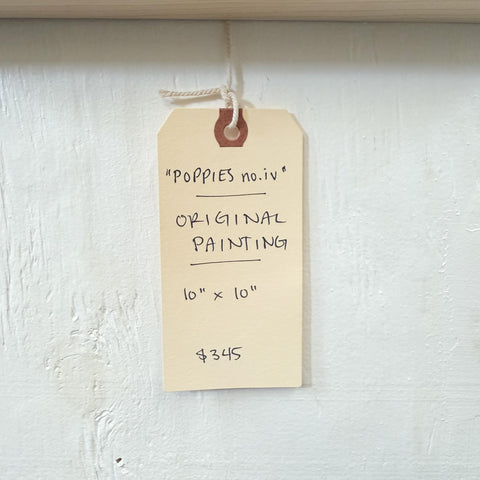 "POPPIES no.iv"
ORIGINAL
PAINTING
10" x 10"
$345